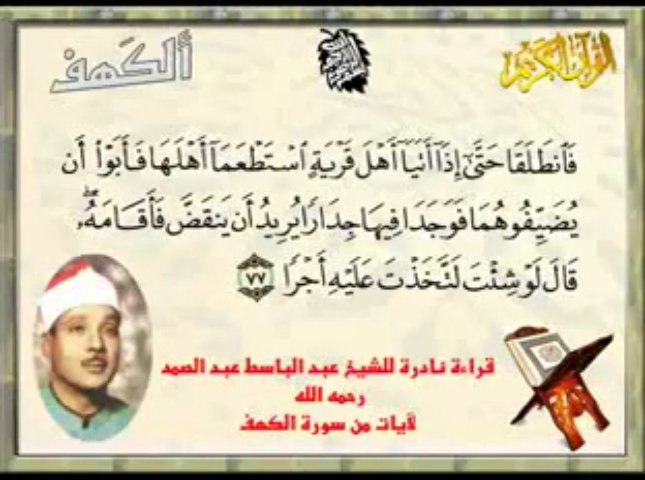 القرآن الكريم
ألكهف
فَٱنطَلَقَا حَتَّىٰٓ إِذَآ أَتَيَآ أَهْلَ قَرْيَةٍ ٱسْتَطْعَمَآ أَهْلَهَا فَأَبَوْا۟ أَن
يُضَيِّفُوهُمَا فَوَجَدَا فِيهَا جِدَارًا يُرِيدُ أَن يَنقَضَّ فَأَقَامَهُۥۖ
قَالَ لَوْ شِئْتَ لَتَّخَذْتَ عَلَيْهِ أَجْرًا ٧٧
قراءة نادرة للشيخ عبد الباسط عبد الصمد
رحمه الله
لآيات من سورة الكهف